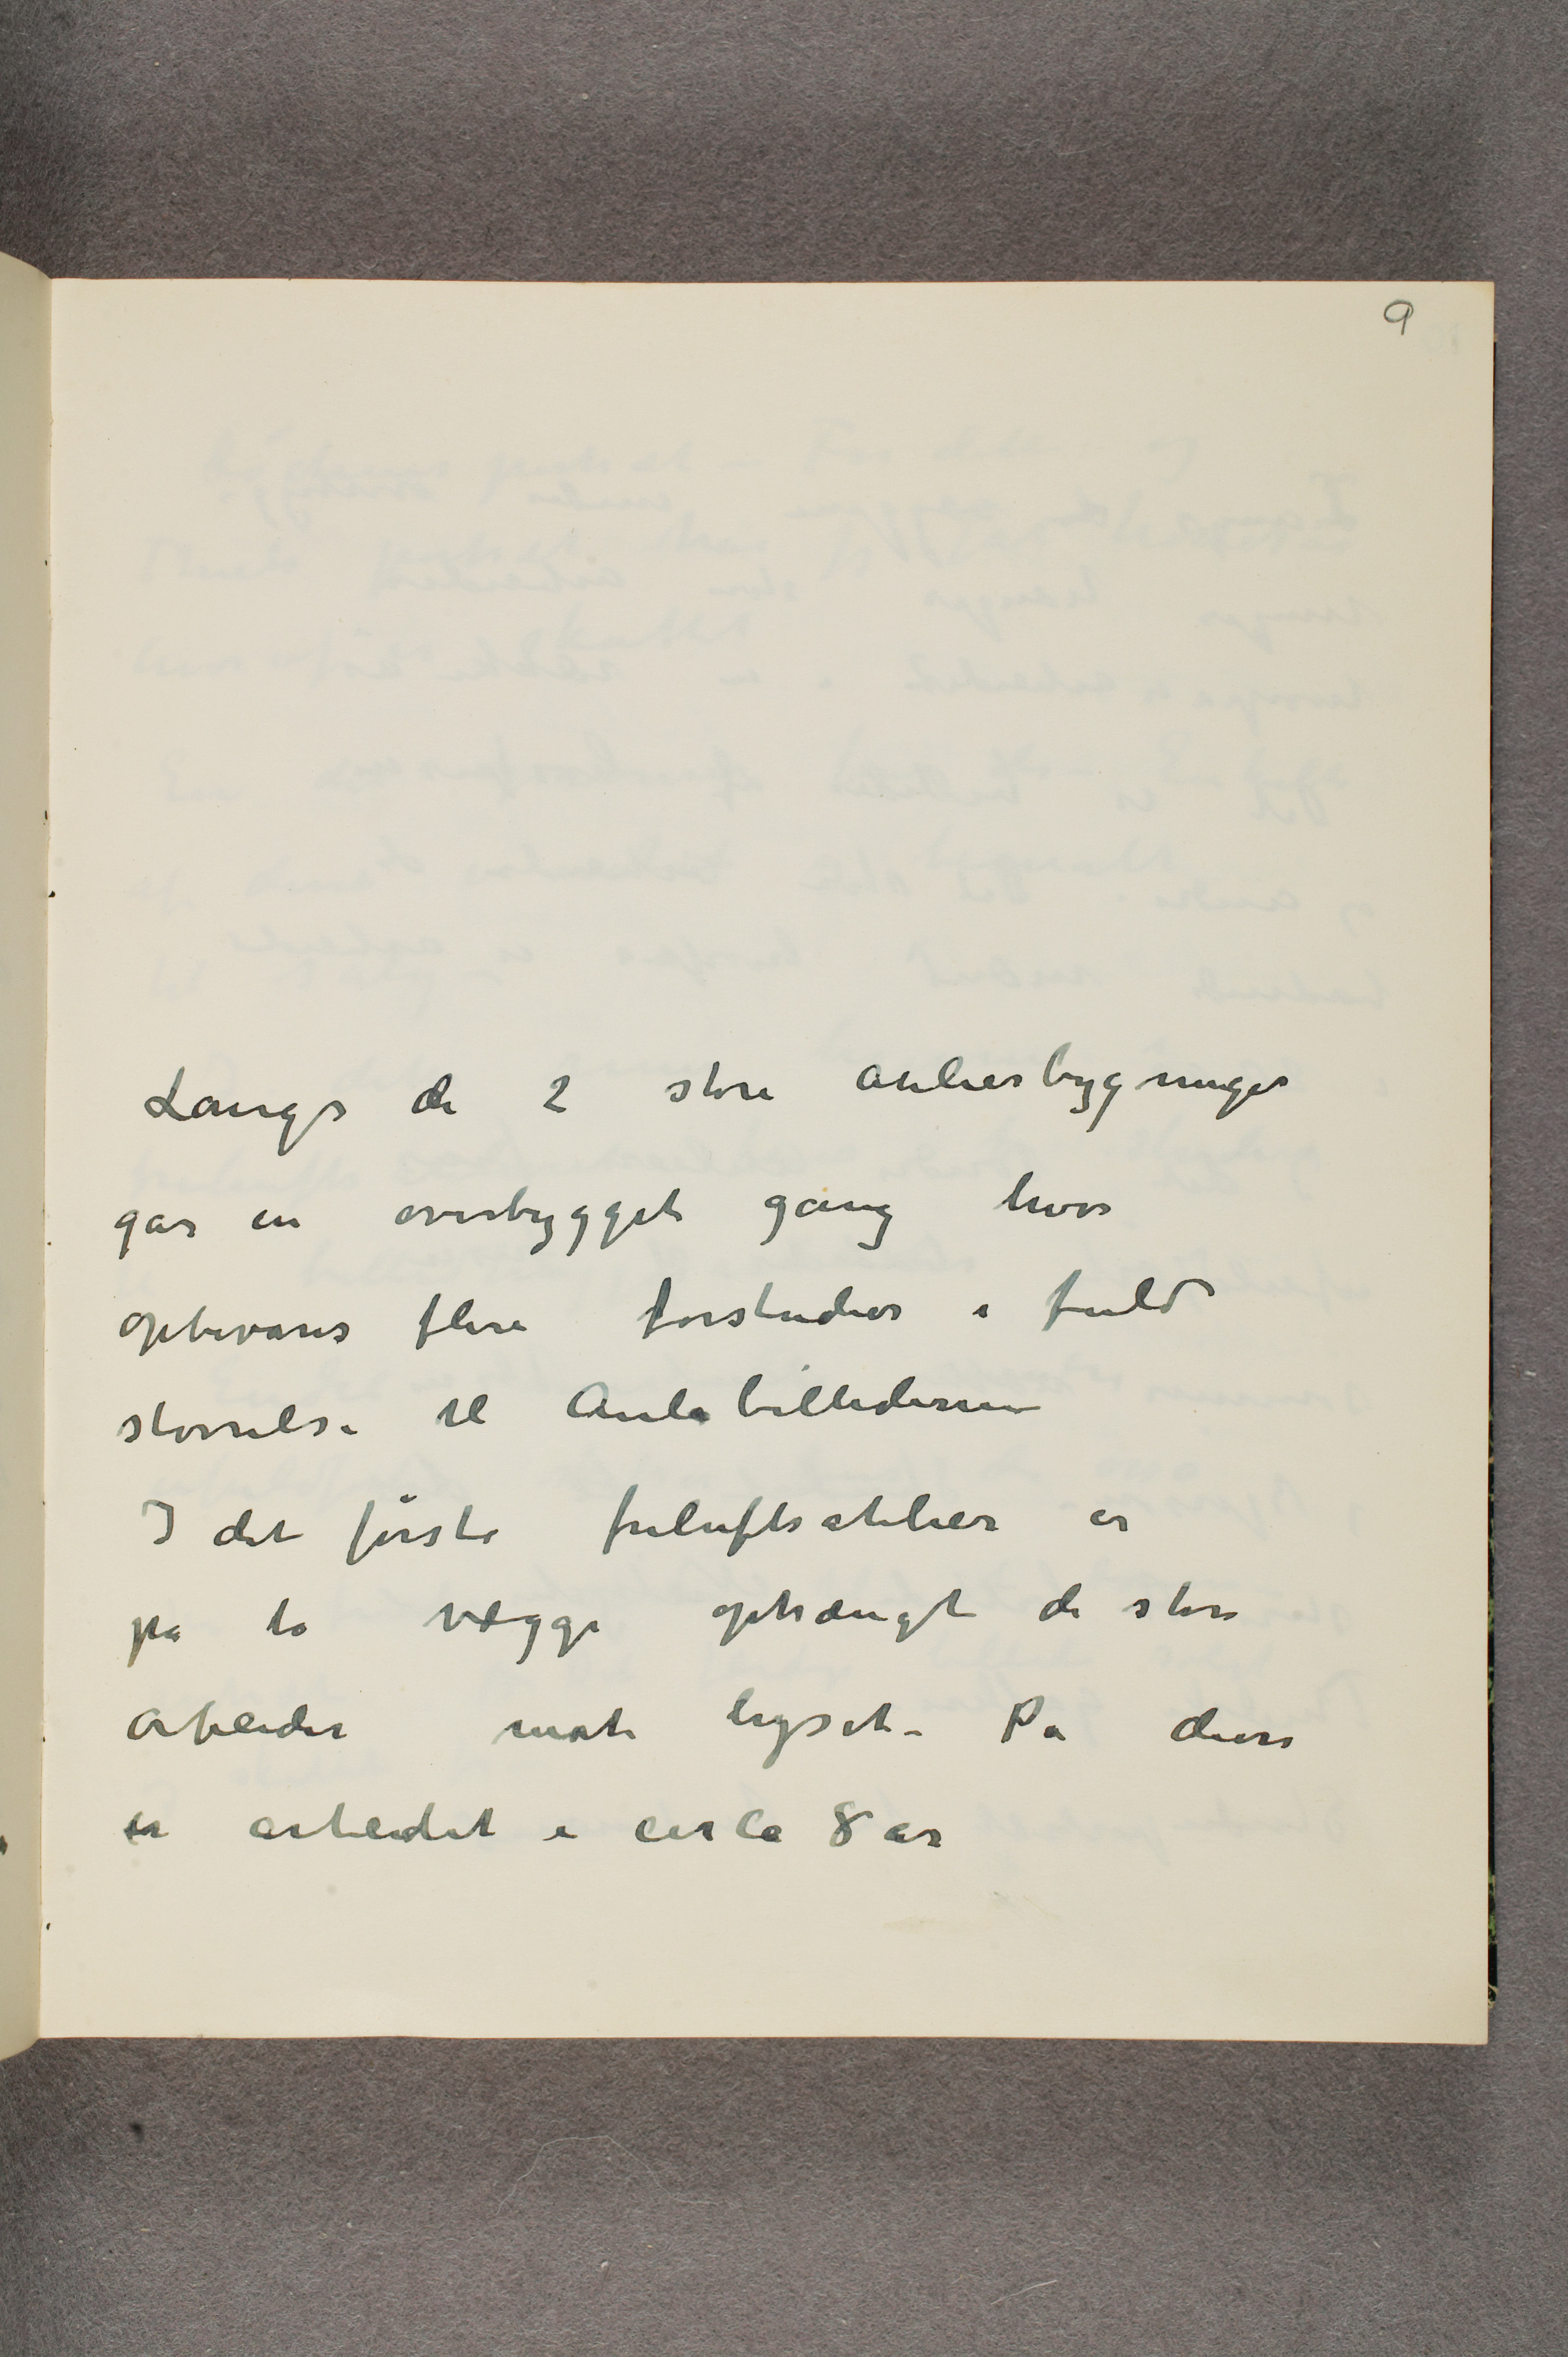 9
Langs de 2 store atelierbygninger
går en overbygget gang hvor
opbevares flere forstudier i fuld
størrelse til Aulabillederne
I det første friluftsatelier er
på to vægge ophængt de store
arbeider mot lyset – På disse
er arbeidet i cirka 8 år